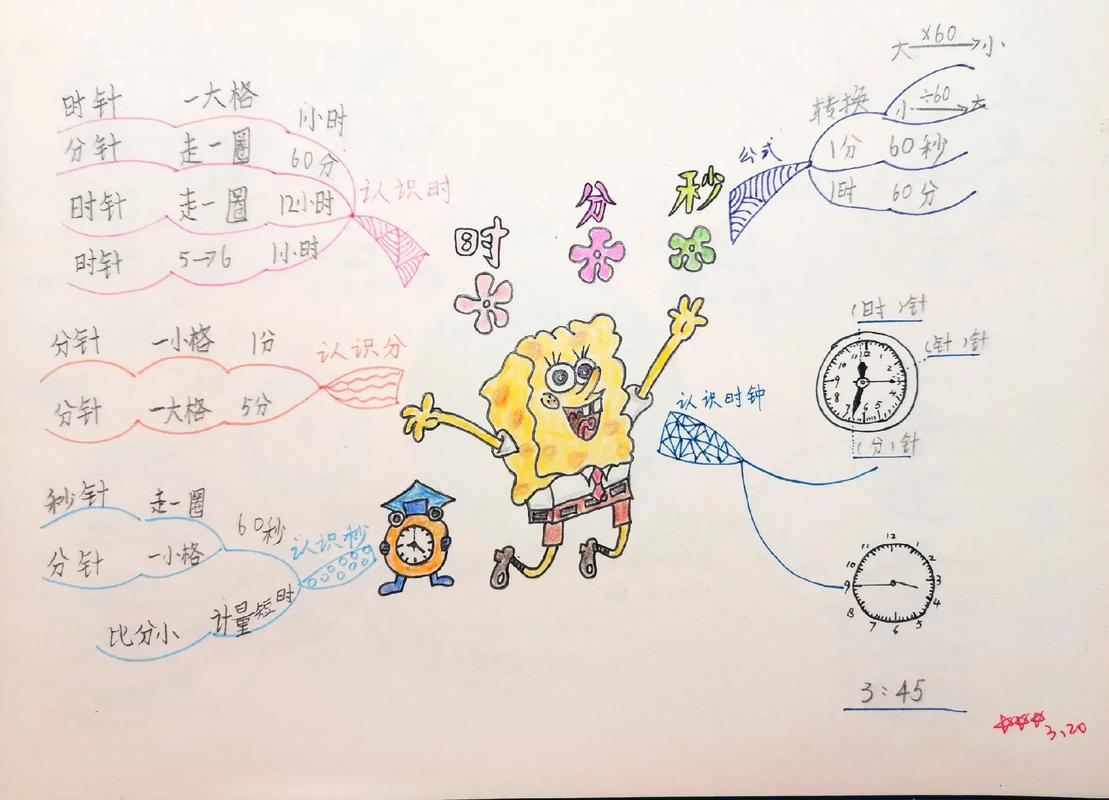 时 分 秒
认识时
时针 一大格 1小时
分针 走一圈 60分
时针 走一圈 12小时
时针 5→6 1小时
认识分
分针 一小格 1分
分针 一大格 5分
认识秒
秒针 走一圈
分针 一小格
60秒
计量短时
比分小
公式
转换
大 ×60 小
小 ÷60 大
1分 60秒
1时 60分
认识时钟
(时)针
(针)针
(分)针
12 1 2 3 4 5 6 7 8 9 10 11
3:45
3、20